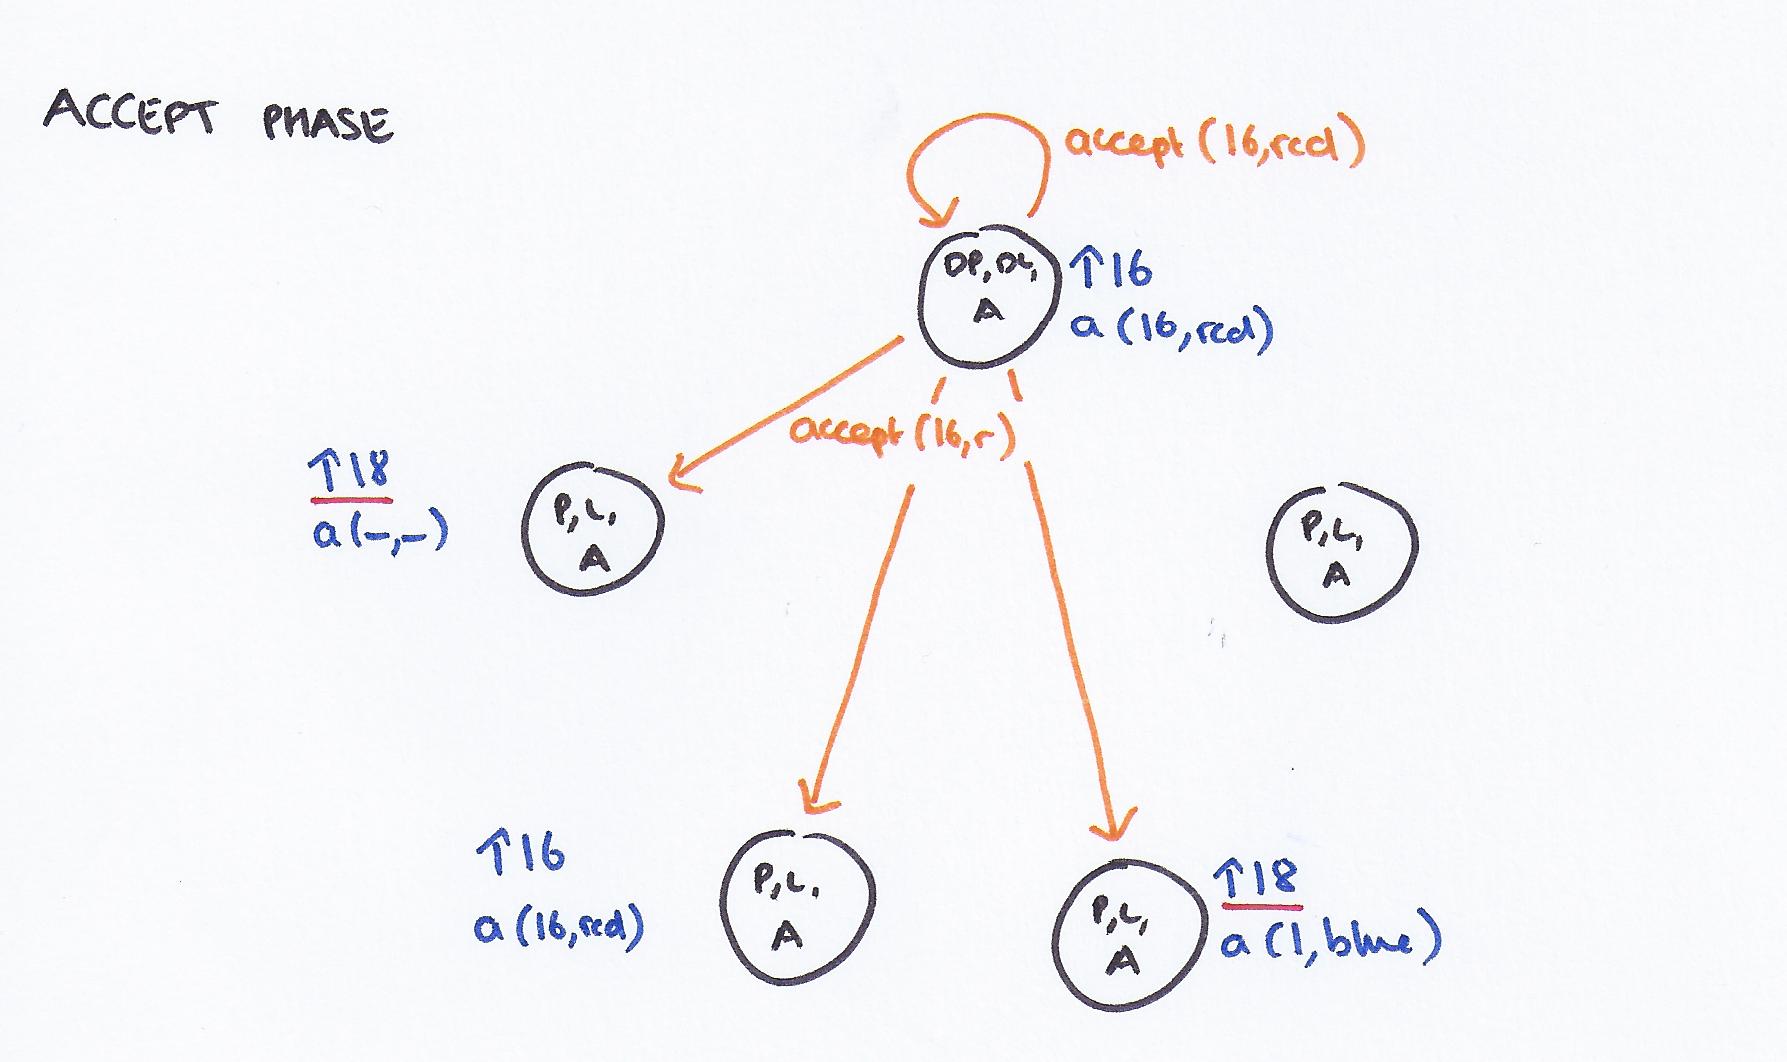 ACCEPT PHASE
accept (16,red)
DP, DL,
A
↑16
a (16,red)
accept (16,r)
↑18
a (-,-)
P, L,
A
P, L,
A
↑16
a (16,red)
P, L,
A
P, L,
A
↑18
a (1, blue)